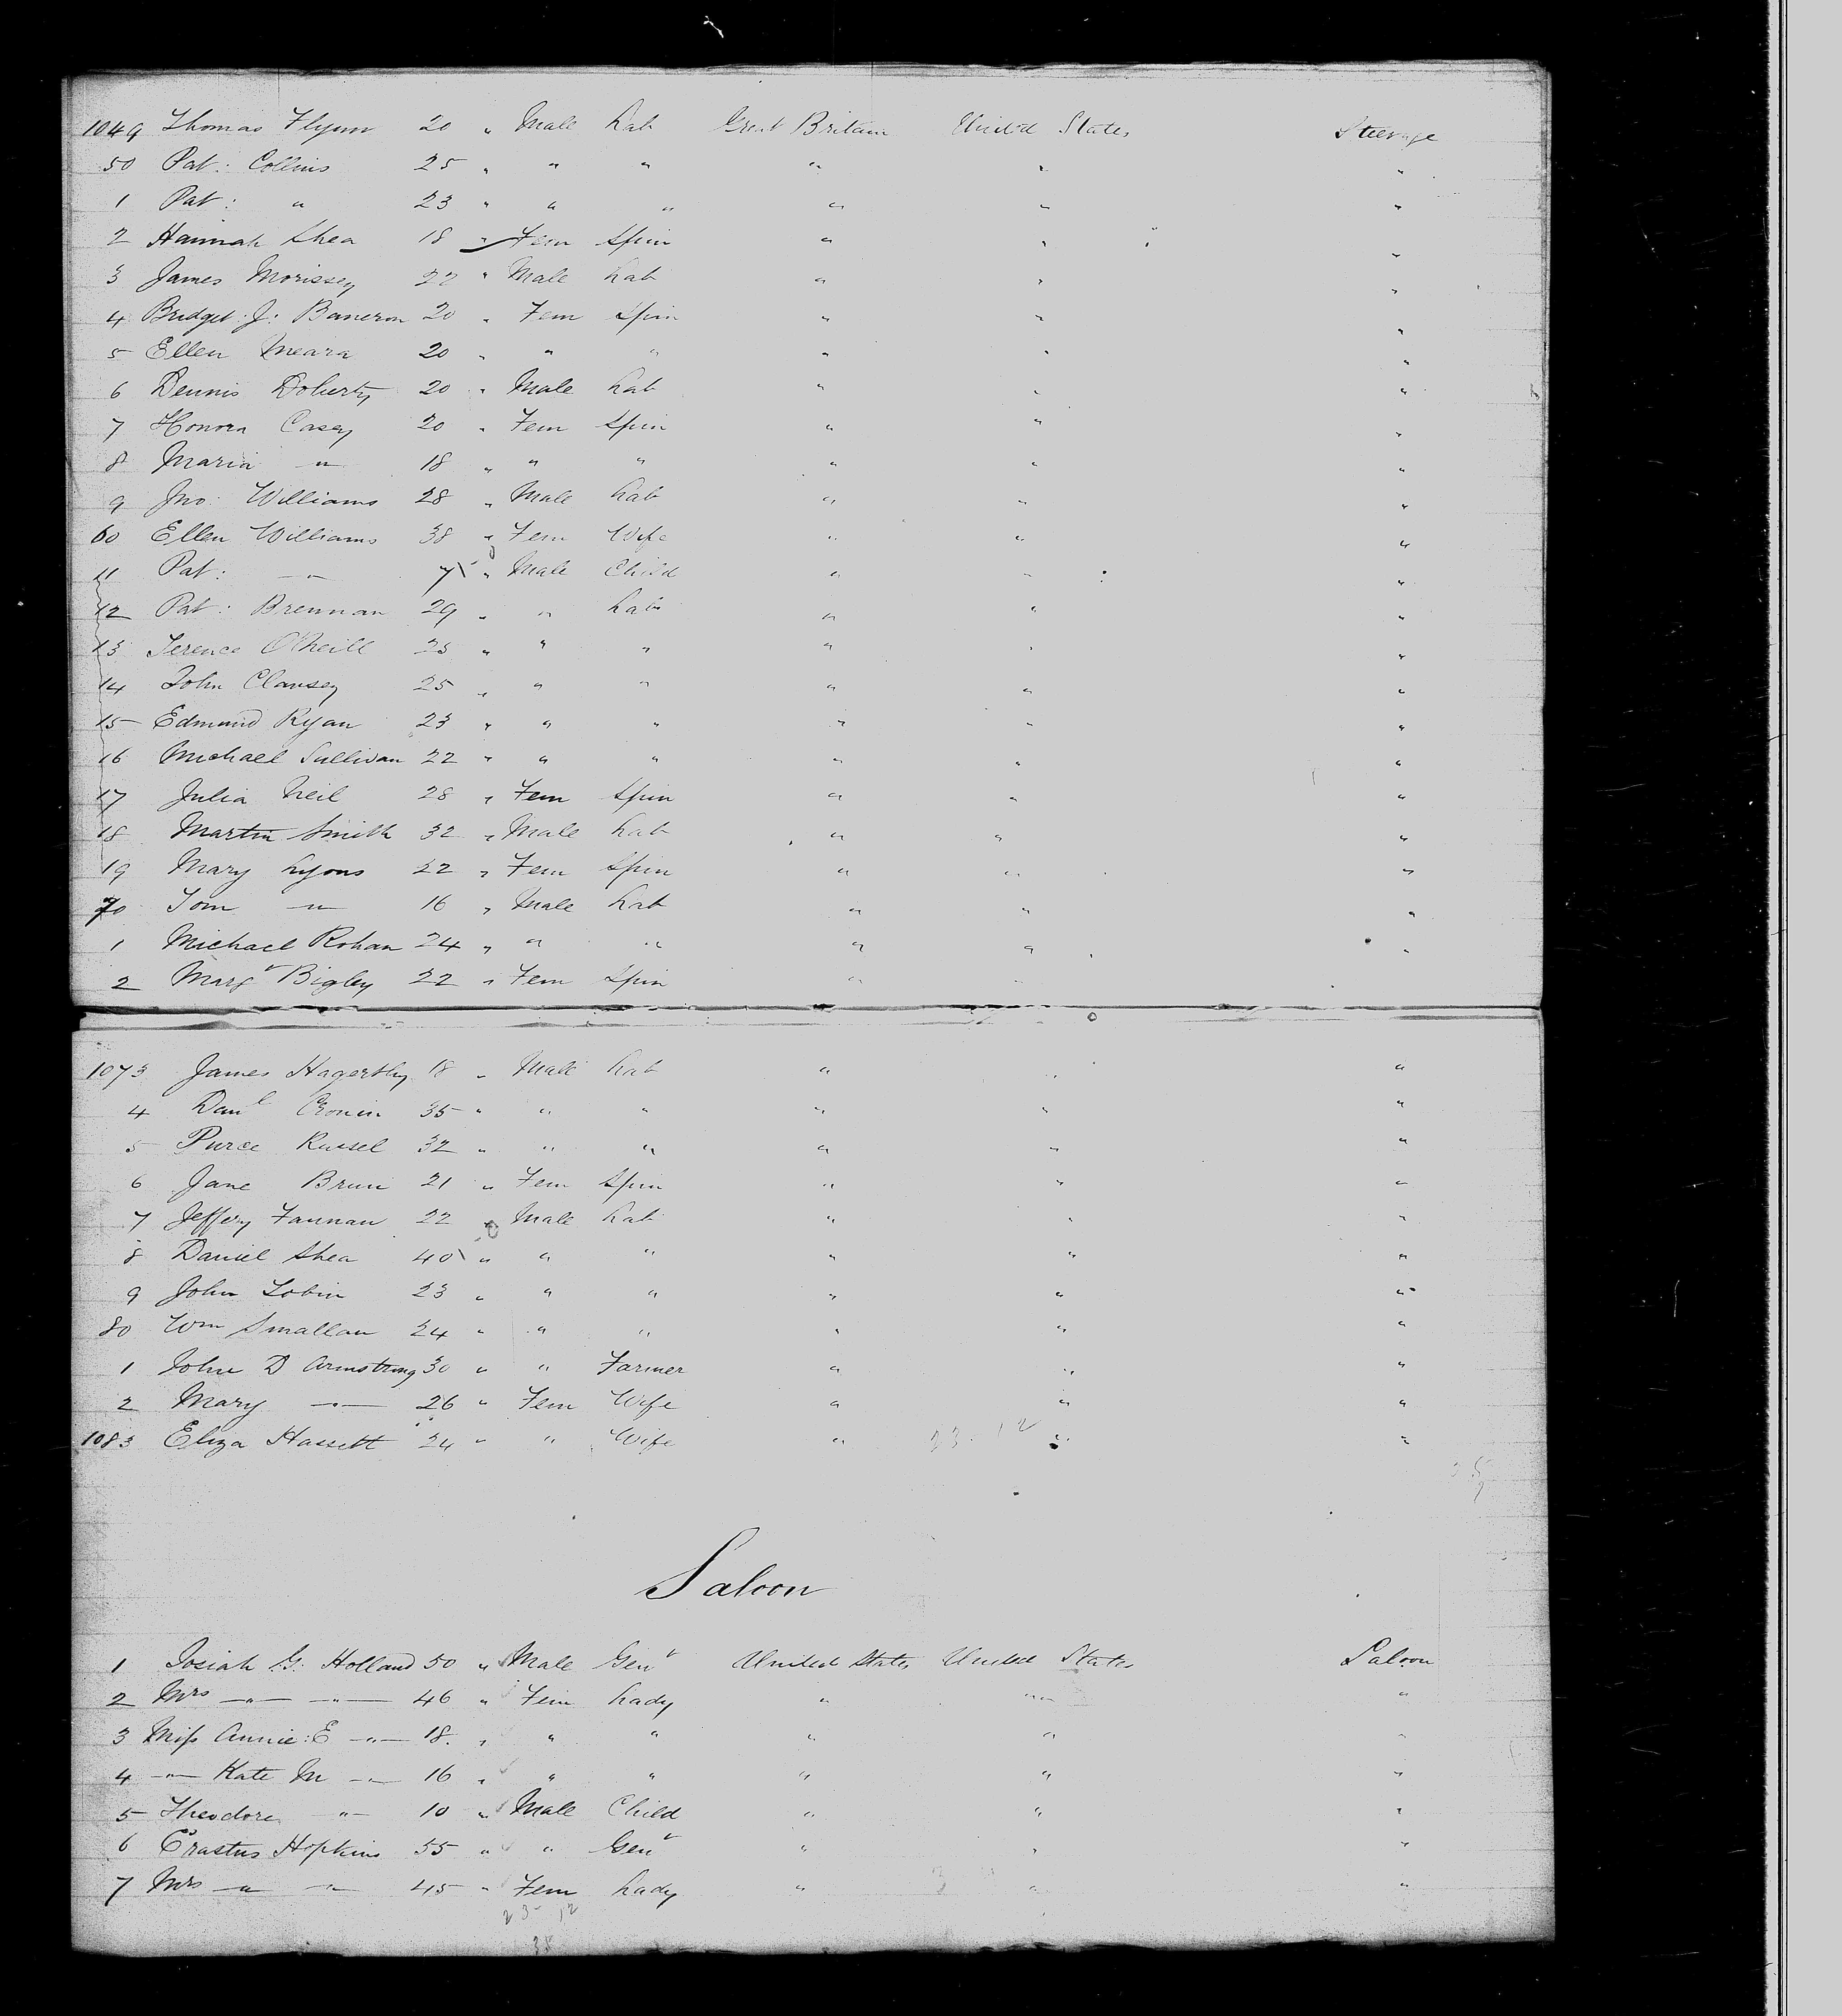 1049 Thomas Flynn 20 " Male Lab Great Britain United States Steerage
50 Pat: Collins 25 " " " " " "
1 Pat: " 23 " " " " " "
2 Hannah Shea 18 " Fem Spin " " "
3 James Morissey 22 " Male Lab " " "
4 Bridget J: 20 " Fem Spin " " "
5 Ellen Meara 20 " " " " " "
6 Dennis Doherty 20 " Male Lab " " "
7 Honora Casey 20 " Fem Spin " " "
8 Maria " 18 " " " " " "
9 Jno: Williams 28 " Male Lab " " "
60 Ellen Williams 38 " Fem Wife " " "
11 Pat: " 7 " Male Child " " "
12 Pat: Brennan 29 " " Lab " " "
13 Terence O'Neill 25 " " " " " "
14 John Clansey 25 " " " " " "
15 Edmund Ryan 23 " " " " " "
16 Michael Sullivan 22 " " " " " "
17 Julia Neil 28 " Fem Spin " " "
18 Martin Smith 32 " Male Lab " " "
19 Mary Lyons 22 " Fem Spin " " "
70 Tom " 16 " Male Lab " " "
1 Michael Rohan 24 " " " " " "
2 Margt Bigley 22 " Fem Spin " "
1073 James Hagerthy 18 " Male Lab " " "
4 Danl Cronin 35 " " " " " "
5 Purce Russel 32 " " " " " "
6 Jane 21 " Fem Spin " " "
7 Jeffery Fannan 22 " Male Lab " " "
8 Daniel Shea 40 " " " " " "
9 John Tobin 23 " " " " " "
80 Wm Smallan 24 " " " " " "
1 John D Armstrong 30 " " Farmer " " "
2 Mary " 26 " Fem Wife " " "
1083 Eliza Hassett 24 " " Wife " 23. 12 " "
Saloon
1 Josiah G. Holland 50 " Male Gent United States United States Saloon
2 Mrs " " 46 " Fem Lady " " "
3 Miss Annie: E " 18. " " " " " "
4 " Kate M " 16 " " " " " "
5 Theodore " 10 " Male Child " " "
6 Erastus Hopkins 55 " " Gent " " "
7 Mrs " " 45 " Fem Lady " " "
23 12
38